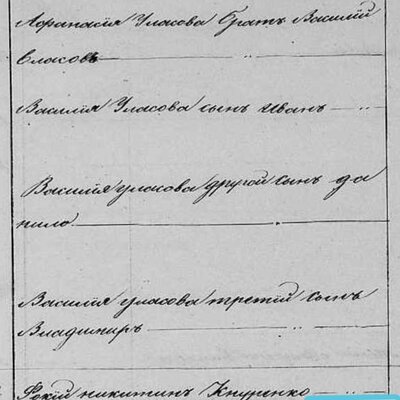 Афанасія Уласова братъ Василій
Власовъ
Василія Уласова сынъ Иванъ
Василія уласова другой сынъ да
нило
Василія уласова третій сынъ
Владимиръ
Фокій никитинъ Кнуренко